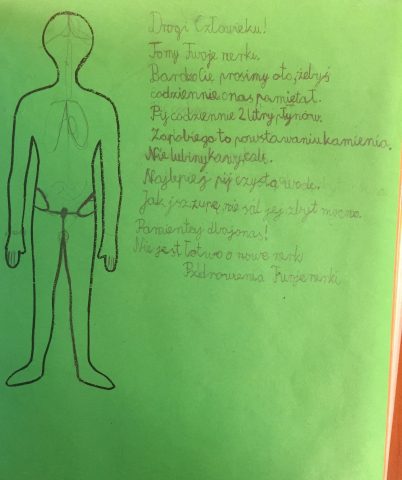 Drogi Człowieku!
To my Twoje nerki.
Bardzo Cię prosimy o to, żebyś
codziennie o nas pamiętał.
Pij codziennie 2 litry płynów.
Zapobiega to powstawaniu kamienia.
Nie lubimy kawy, coli.
Najlepiej pij czystą wodę.
Jak jesz zupę nie sól jej zbyt mocno.
Pamientaj dbaj o nas!
Nie jest łatwo o nowe nerk
Pozdrowienia Twoje nerki